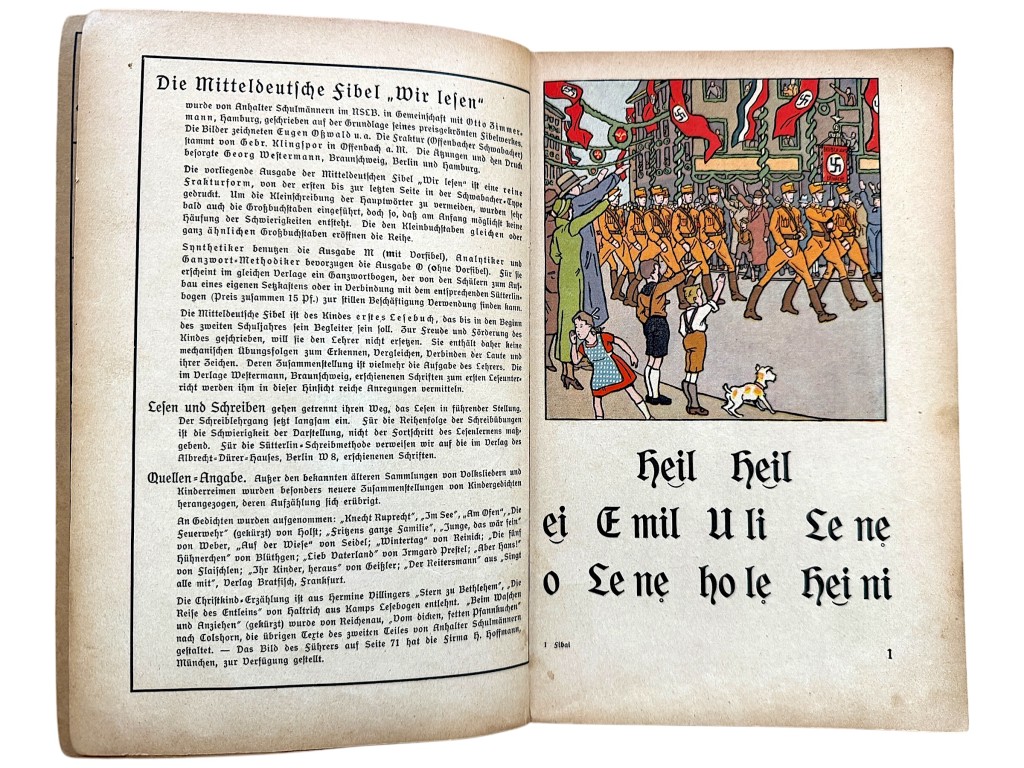 Die Mitteldeutsche Fibel „Wir lesen“
wurde von Anhalter Schulmännern im NSLB. in Gemeinschaft mit Otto Zimmer-
mann, Hamburg, geschrieben auf der Grundlage seines preisgekrönten Fibelwerkes.
Die Bilder zeichneten Eugen Oßwald u. a. Die Fraktur (Offenbacher Schwabacher)
stammt von Gebr. Klingspor in Offenbach a. M. Die Ätzungen und den Druck
besorgte Georg Westermann, Braunschweig, Berlin und Hamburg.
Die vorliegende Ausgabe der Mitteldeutschen Fibel „Wir lesen“ ist eine reine
Frakturform, von der ersten bis zur letzten Seite in der Schwabacher-Type
gedruckt. Um die Kleinschreibung der Hauptwörter zu vermeiden, wurden sehr
bald auch die Großbuchstaben eingeführt, doch so, daß am Anfang möglichst keine
Häufung der Schwierigkeiten entsteht. Die den Kleinbuchstaben gleichen oder
ganz ähnlichen Großbuchstaben eröffnen die Reihe.
Synthetiker benutzen die Ausgabe M (mit Vorfibel), Analytiker und
Ganzwort-Methodiker bevorzugen die Ausgabe O (ohne Vorfibel). Für sie
erscheint im gleichen Verlage ein Ganzwortbogen, der von den Schülern zum Auf-
bau eines eigenen Setzkastens oder in Verbindung mit dem entsprechenden Sütterlin-
bogen (Preis zusammen 15 Pf.) zur stillen Beschäftigung Verwendung finden kann.
Die Mitteldeutsche Fibel ist des Kindes erstes Lesebuch, das bis in den Beginn
des zweiten Schuljahres sein Begleiter sein soll. Zur Freude und Förderung des
Kindes geschrieben, will sie den Lehrer nicht ersetzen. Sie enthält daher keine
mechanischen Übungsfolgen zum Erkennen, Vergleichen, Verbinden der Laute und
ihrer Zeichen. Deren Zusammenstellung ist vielmehr die Aufgabe des Lehrers. Die
im Verlage Westermann, Braunschweig, erschienenen Schriften zum ersten Leseunter-
richt werden ihm in dieser Hinsicht reiche Anregungen vermitteln.
Lesen und Schreiben gehen getrennt ihren Weg, das Lesen in führender Stellung.
Der Schreiblehrgang setzt langsam ein. Für die Reihenfolge der Schreibübungen
ist die Schwierigkeit der Darstellung, nicht der Fortschritt des Lesenlernens maß-
gebend. Für die Sütterlin-Schreibmethode verweisen wir auf die im Verlag des
Albrecht-Dürer-Hauses, Berlin W 8, erschienenen Schriften.
Quellen-Angabe. Außer den bekannten älteren Sammlungen von Volksliedern und
Kinderreimen wurden besonders neuere Zusammenstellungen von Kindergedichten
herangezogen, deren Aufzählung sich erübrigt.
An Gedichten wurden aufgenommen: „Knecht Ruprecht“, „Im See“, „Am Ofen“, „Die
Feuerwehr“ (gekürzt) von Holst; „Fritzens ganze Familie“, „Junge, das wär fein“
von Weber, „Auf der Wiese“ von Seidel; „Wintertag“ von Reinick; „Die fünf
Hühnerchen“ von Blüthgen; „Lieb Vaterland“ von Irmgard Prestel; „Aber Hans!“
von Flaischlen; „Ihr Kinder, heraus“ von Geißler; „Der Reitersmann“ aus „Singt
alle mit“, Verlag Bratfisch, Frankfurt.
Die Christkind-Erzählung ist aus Hermine Villingers „Stern zu Bethlehem“, „Die
Reise des Entleins“ von Haltrich aus Kamps Lesebogen entlehnt. „Beim Waschen
und Anziehen“ (gekürzt) wurde von Reichenau, „Vom dicken, fetten Pfannkuchen“
nach Colshorn, die übrigen Texte des zweiten Teiles von Anhalter Schulmännern
gestaltet. — Das Bild des Führers auf Seite 71 hat die Firma H. Hoffmann,
München, zur Verfügung gestellt.
Heil Heil
ei E mil U li Le ne
o Le ne ho le Hei ni
1 Fibel
1